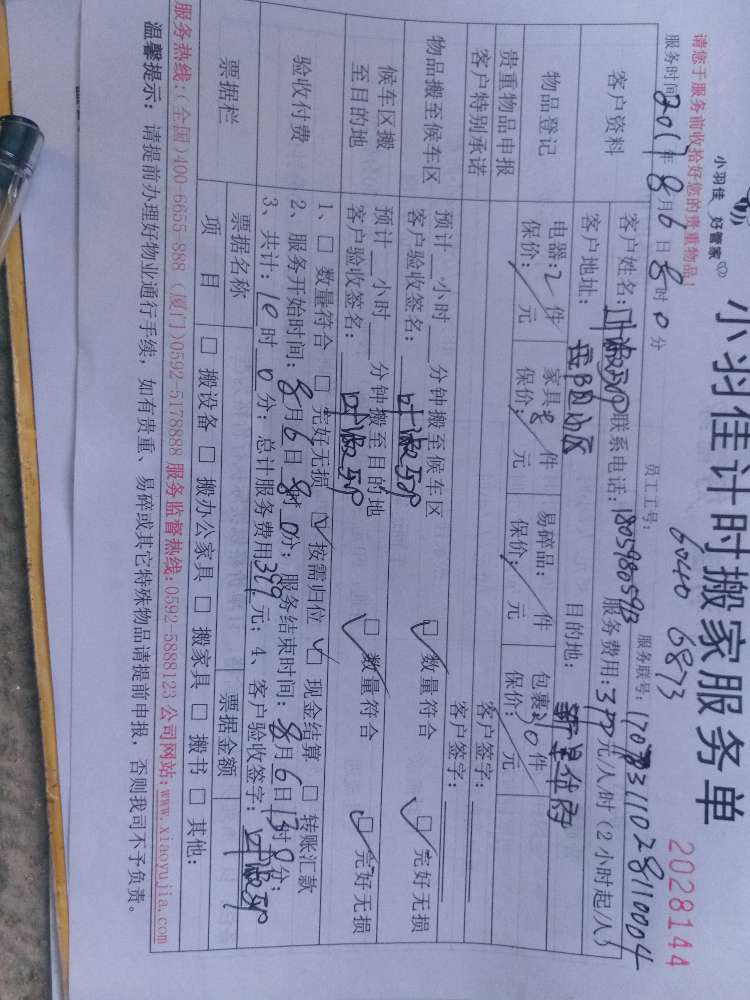 小羽佳 好管家
小羽佳计时搬家服务单
2028144
请您于服务前收拾好您的贵重物品!
员工工号: 6040 6873
服务时间 2017年8月6日8时0分
服务联号:
客户资料
客户姓名: 联系电话:18059805913 服务费用: 元/人/时(2小时起/人)
客户地址: 目的地:
物品登记
电器:2件 家具8件 易碎品:/件 包裹30件
保价:/元 保价:/元 保价:/元 保价:/元
贵重物品申报 客户签字:
客户特别承诺 客户签字:
物品搬至候车区
预计__小时__分钟搬至候车区 ☑数量符合 ☑完好无损
客户验收签名:
候车区搬至目的地
预计__小时__分钟搬至目的地 ☑数量符合 ☑完好无损
客户验收签名:
验收付费
1、□ 数量符合 □ 完好无损 ☑按需归位 ☑现金结算 □ 转账汇款
2、服务开始时间:8月6日8时0分;服务结束时间:8月6日 时 分;
3、共计:10时0分;总计服务费用 元;4、客户验收签字:
票据栏
票据名称 票据金额
项 目 □ 搬设备 □ 搬办公家具 □ 搬家具 □ 搬书 □ 其他:
服务热线:(全国)400-6655-888 (厦门)0592-5178888 服务监督热线:0592-5888123 公司网站:www.xiaoyujia.com
温馨提示: 请提前办理好物业通行手续,如有贵重、易碎或其它特殊物品请提前申报,否则我司不予负责。